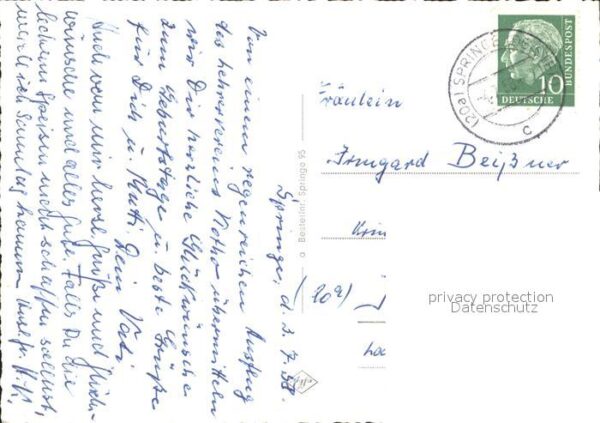 Springe, d. 2. 7. 58.
Von einem regenreichen Ausflug
des Lehrervereins übermitteln
wir Dir herzliche Glückwünsche
zum Geburtstage u. beste Grüße
für Dich u. Mutti. Dein Vati
Auch von mir herzl. Grüße und Glück-
wünsche und alles Gute. Falls Du die
Speisen nicht schaffen solltest,
ich Sonntag
a Bestertar, Springe 95
(20a) SPRINGE
c
10
DEUTSCHE
BUNDESPOST
Fräulein
Irmgard Beißner
(20a)
privacy protection
Datenschutz